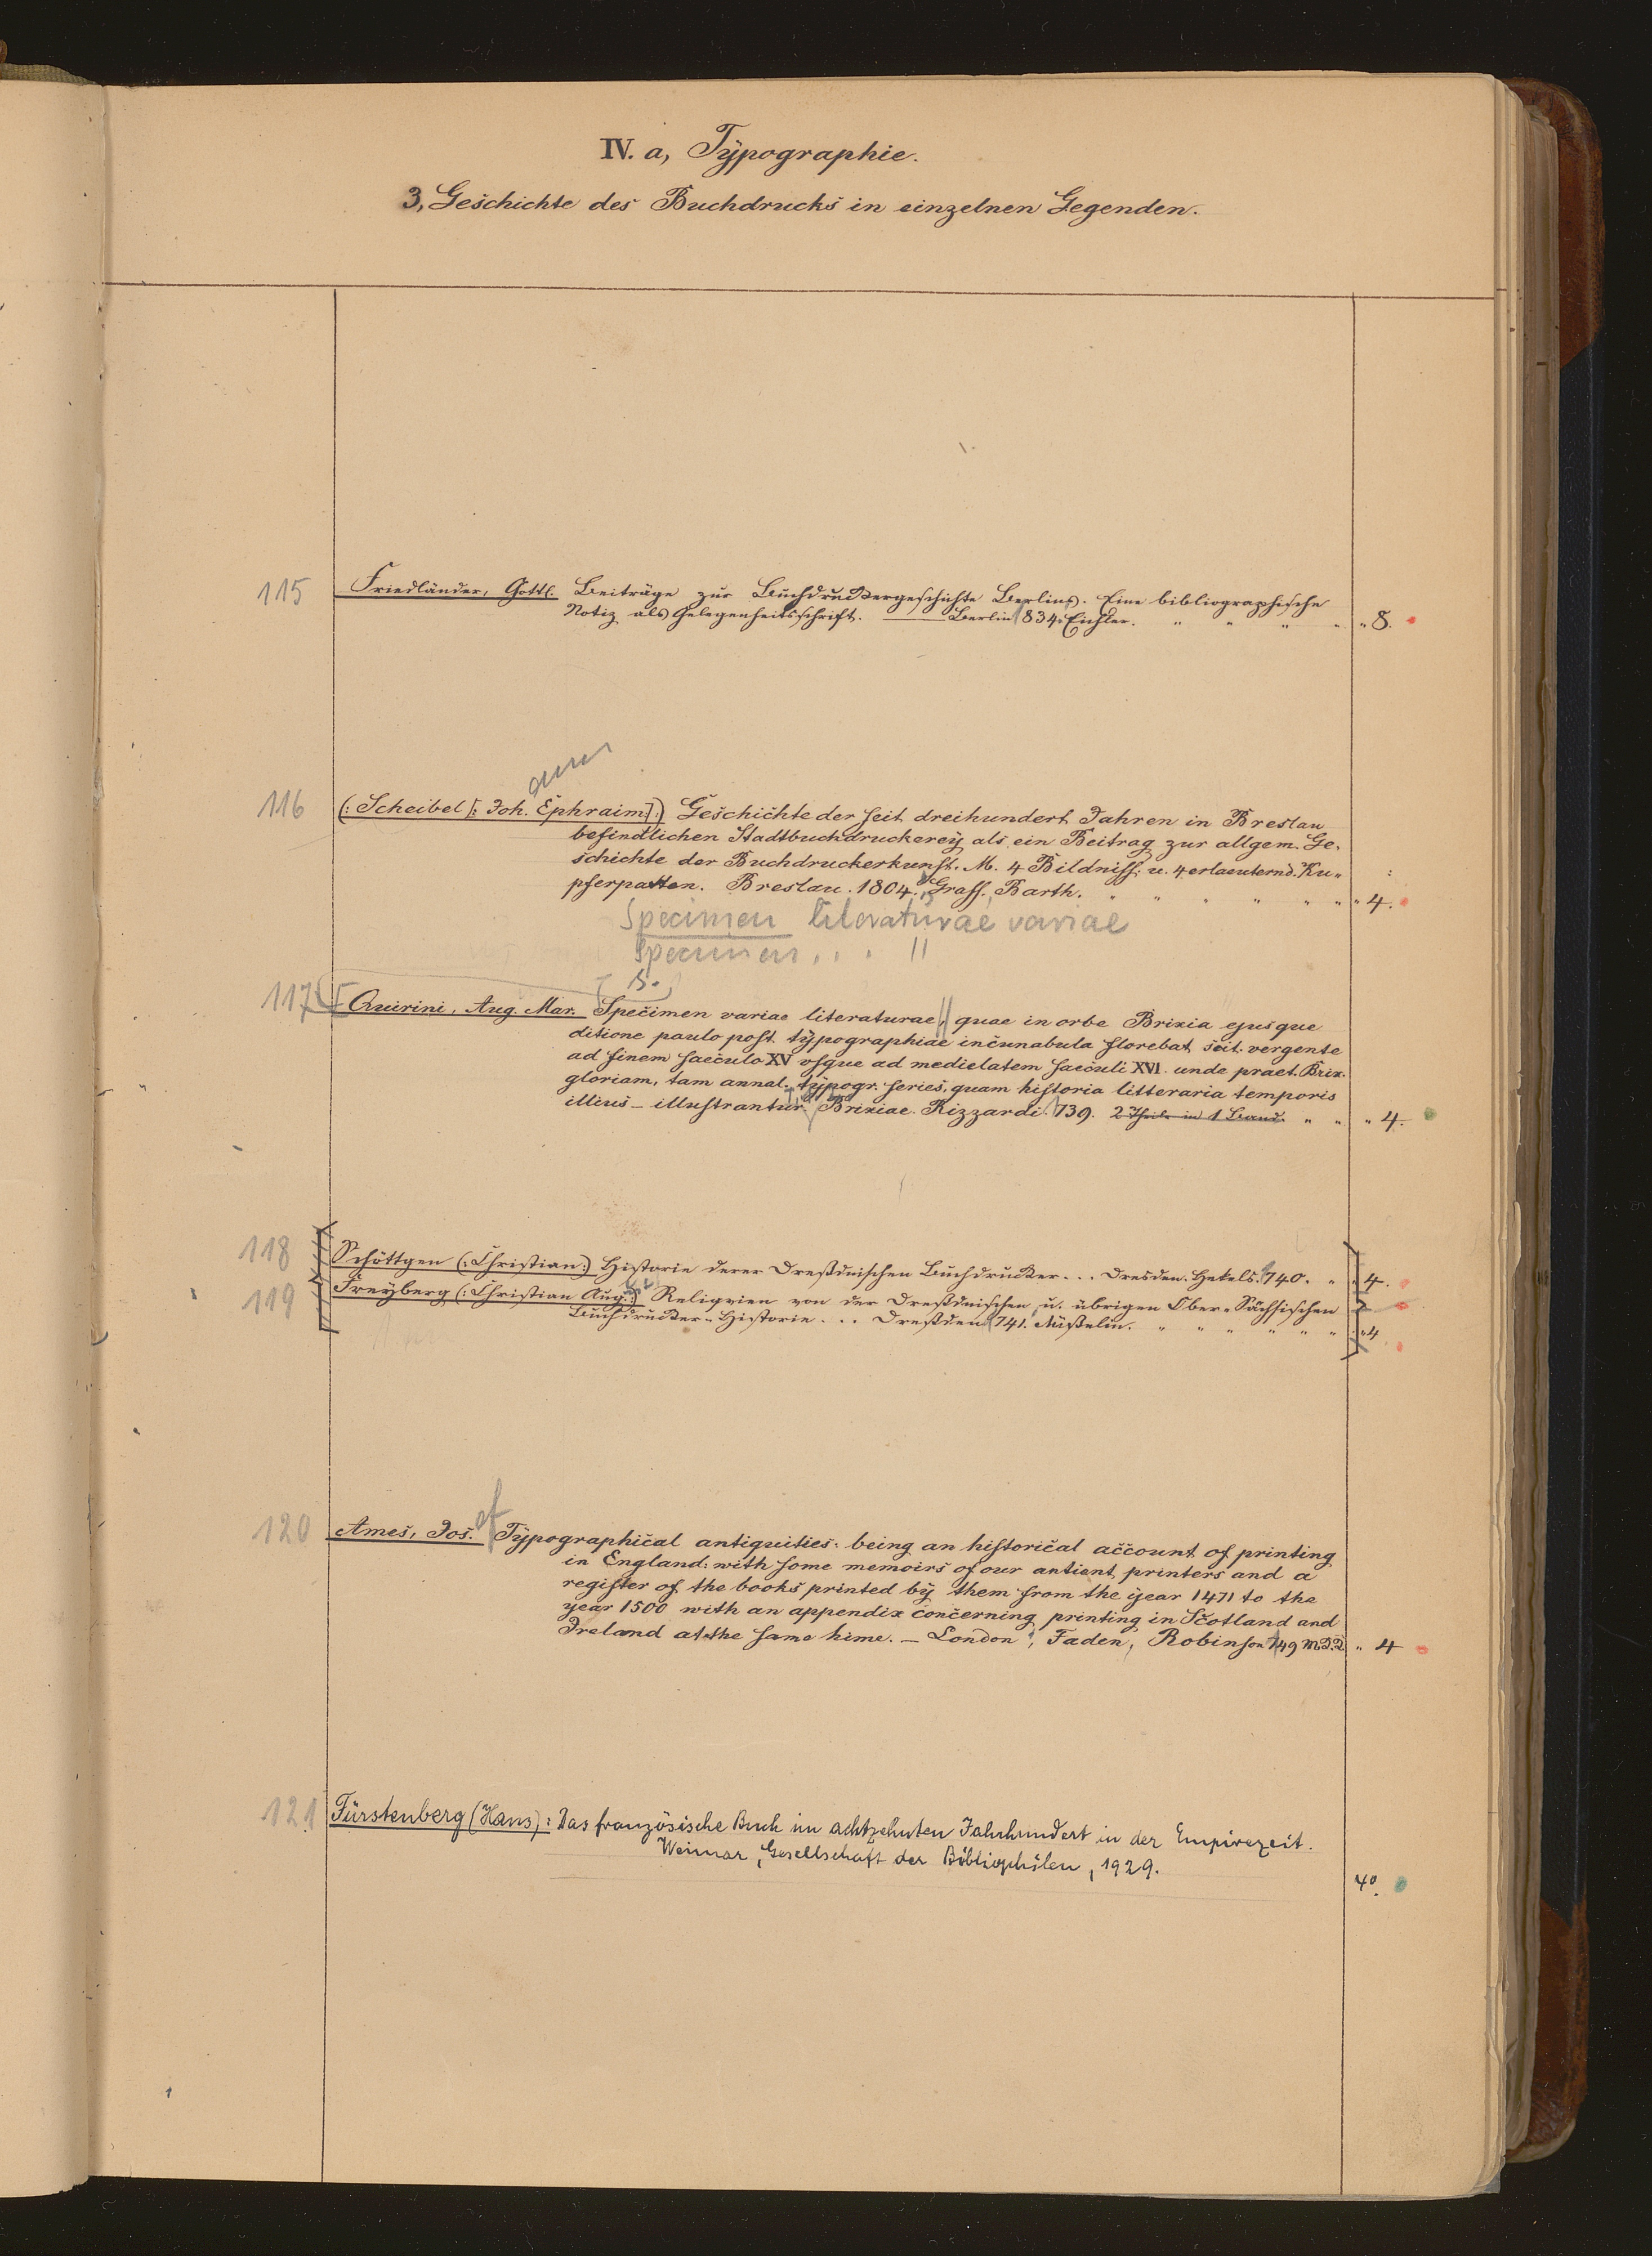 IV. a, Typographie.
3, Geschichte des Buchdrucks in einzelnen Gegenden.
115 Friedländer, Gottl. Beiträge zur Buchdruckergeschichte Berlins. Eine bibliographische
Notiz als Gelegenheitsschrift. Berlin 834. Eichler. " " " " " 8.
116 (: Scheibel [: Joh. Ephraim] :) Geschichte der seit dreihundert Jahren in Breslau
befindlichen Stadtbuchdruckerey als ein Beitrag zur allgem. Ge-
schichte der Buchdruckerkunst. M. 4 Bildniss. u. 4 erlaeuternd. Ku-
pferpatten. Breslau. 1804. Grass, Barth. " " " " " " " 4.
Specimen literaturae variae
Specimen . . . "
s.
117 [Quirini, Aug. Mar. Specimen variae literaturae, quae in orbe Brixia ejusque
ditione paulo post typographiae incunabula florebat scit. vergente
ad finem saeculo XV usque ad medietatem saeculi XVI. unde praet. Brix.
gloriam, tam annal. typogr. series, quam historia litteraria temporis
illius – illustrantur Brixiae. Rizzardi. 739. 2 Theile in 1 Band. " " " 4.
118 Schöttgen (: Christian :) Historie derer Dreßdnischen Buchdrucker . . . Dresden. Hekels. 740. " " 4.
119 Freyberg (: Christian Aug. :) Reliqvien von der Dreßdnischen u. übrigen Ober-Sächsischen
Buchdrucker-Historie . . . Dreßden 741. " " " " " " " 4
120 Ames, Jos. Typographical antiquities: being an historical account of printing
in England: with some memoirs of our antient printers and a
register of the books printed by them from the year 1471 to the
year 1500 with an appendix concerning printing in Scotland and
Ireland at the same hime. – London, Faden, Robinson 749 " 4
121 Fürstenberg (Hans): Das französische Buch im achtzehnten Jahrhundert in der Empirezeit.
Weimar, Gesellschaft der Bibliophilen, 1929.
4°.